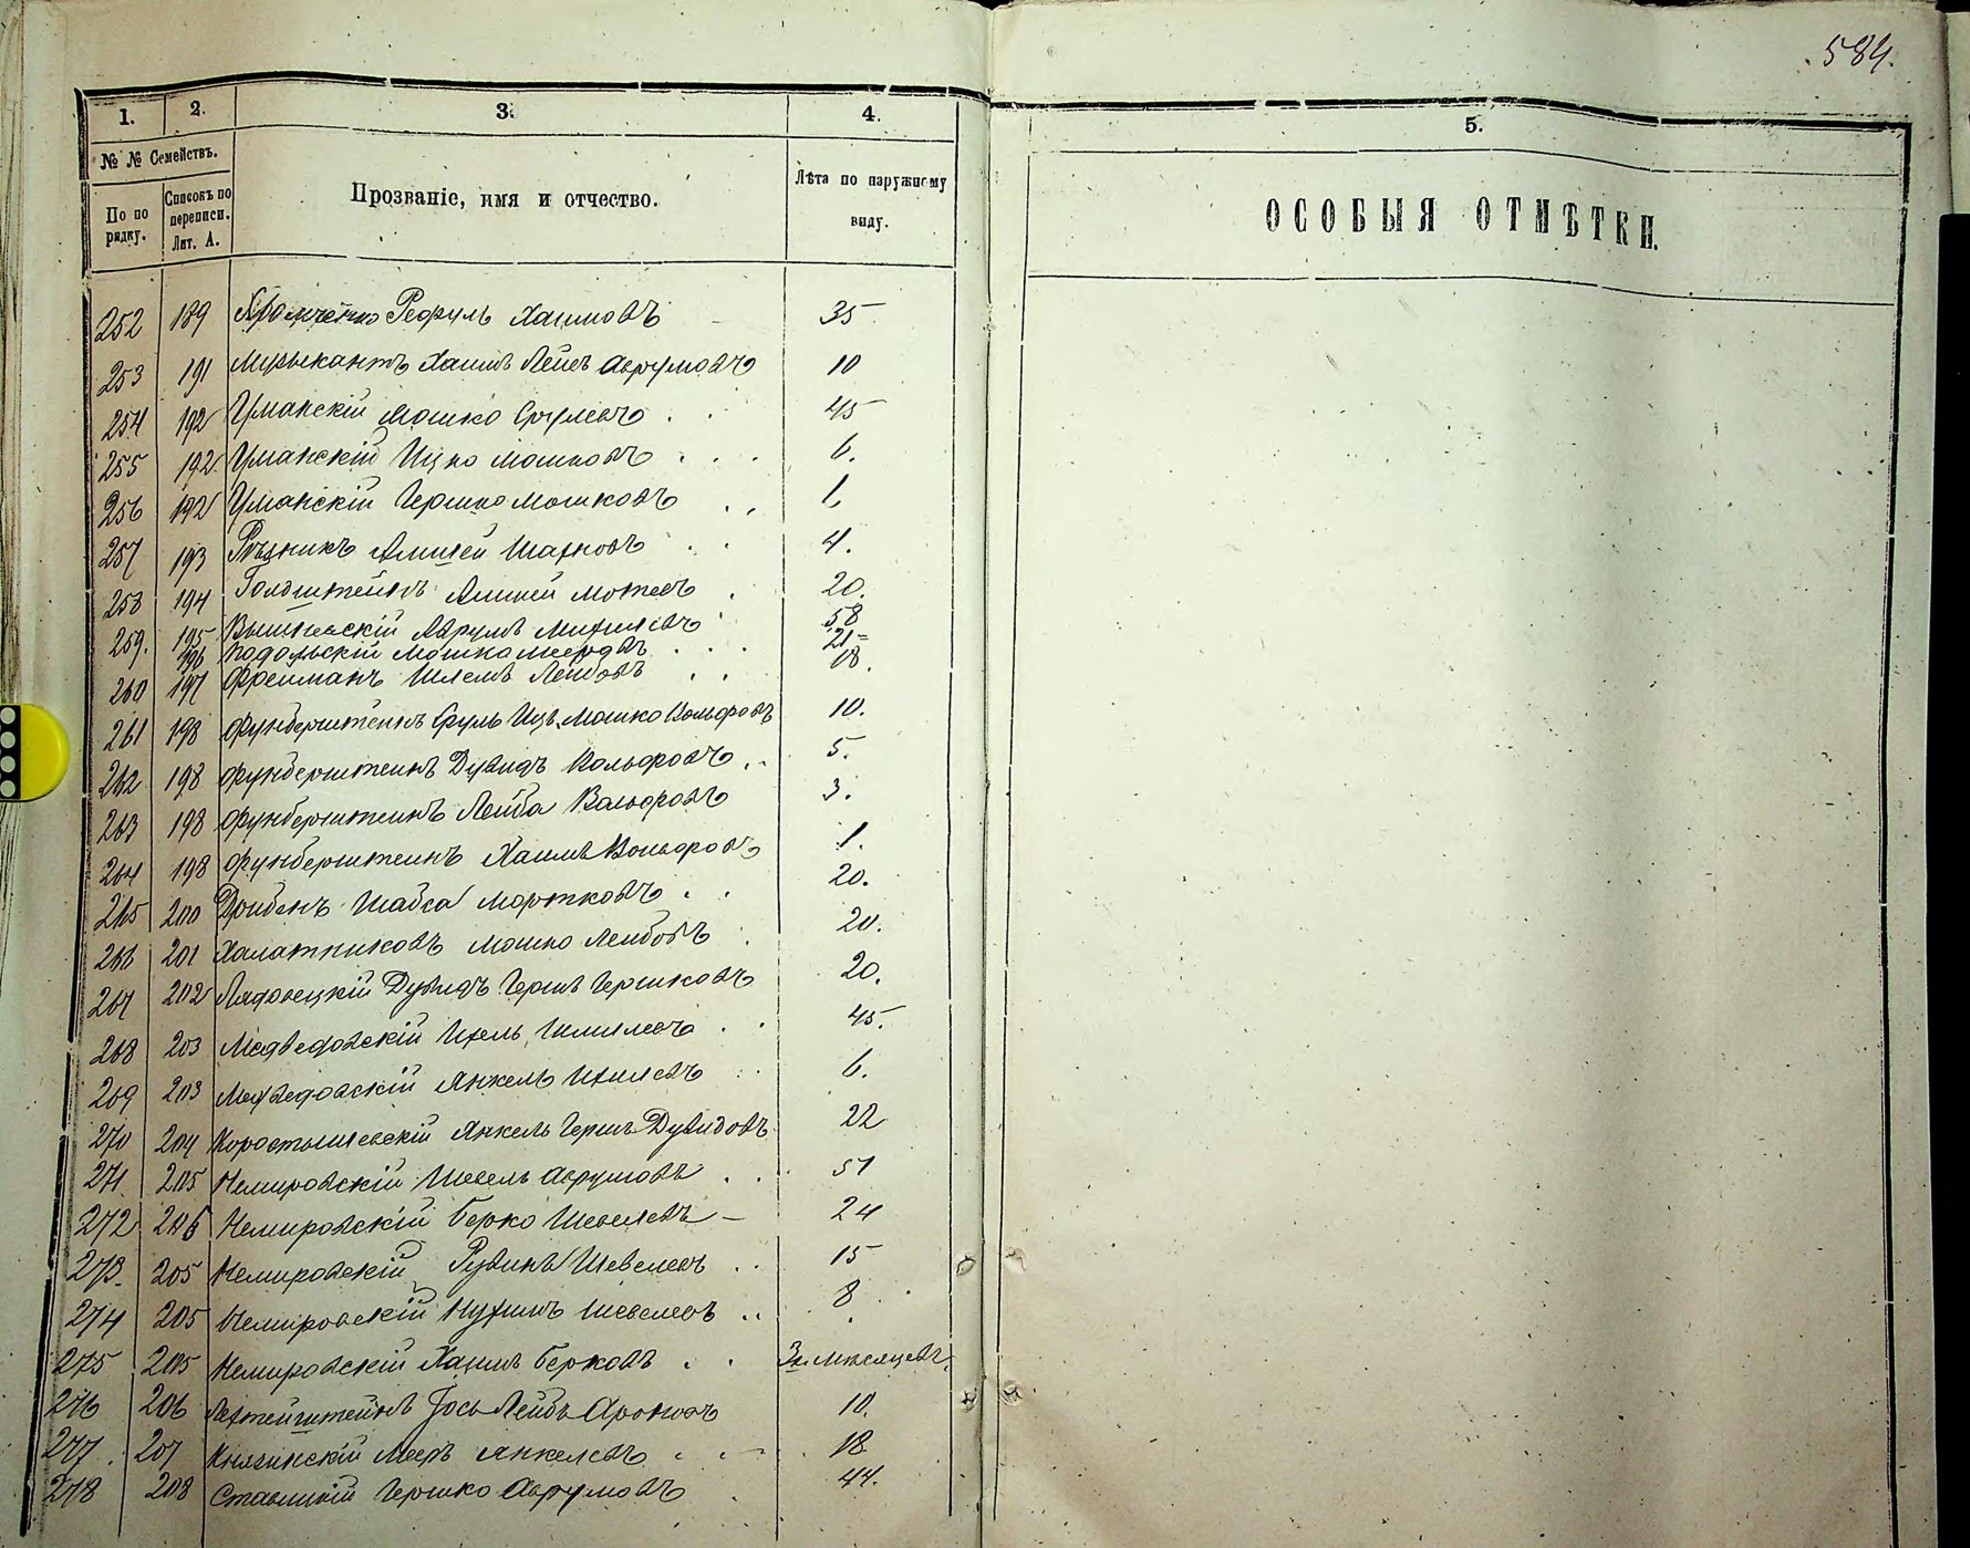 584.
1. 2. 3. 4. 5.
№ № Семействъ.
По по рядку.
Списокъ по переписи. Лит. А.
Прозваніе, имя и отчество.
Лѣта по наружному виду.
ОСОБЫЯ ОТМѢТКИ.
252 189 Рефуль Хаимовъ 35
253 191 Музыкантъ Хаимъ Лейбъ Аврумовъ 10
254 192 Уманскій Мошко Срулевъ 45
255 192 Уманскій Ицко Мошковъ 6.
256 192 Уманскій Гершко Мошковъ 1
257 193 Рѣзникъ Шахновъ 4.
258 194 Голдштейнъ Мотевъ 20.
259. 195 Вышневскій Аврумъ Михилевъ 58
196 Подольскій Мошко Мееровъ 21
260 197 Фрейманъ Шлемъ Лейбовъ 18.
261 198 Фунберштейнъ Сруль Иць Мошко Вольфовъ 10.
262 198 Фунберштейнъ Дувидъ Вольфовъ 5.
263 198 Фунберштейнъ Лейба Вольфовъ 3.
264 198 Фунберштейнъ Хаимъ Вольфовъ 1.
265 200 Дрибенъ Шабса Мортковъ 20.
266 201 Халатниковъ Мошко Лейбовъ 20.
267 202 Лядовецкій Дувидъ Гершъ Гершковъ 20.
268 203 Медведовскій Ихель Шмилевъ 45.
269 203 Медведовскій Янкель Ихилевъ 6.
270 204 Коростышевскій Янкель Гершъ Дувидовъ 22
271 205 Немировскій Шевель Аврумовъ 51
272 205 Немировскій Берко Шевелевъ 24
273. 205 Немировскій Рувинъ Шевелевъ 15
274 205 Немировскій Нухимъ Шевелевъ 8
275 205 Немировскій Хаимъ Берковъ 3х мѣсяцевъ.
276 206 Лехтейнштейнъ Іось Лейбъ Ароновъ 10.
277. 207 Княгинскій Мееръ Янкелевъ 18.
278 208 Ставицкій Гершко Аврумовъ 44.